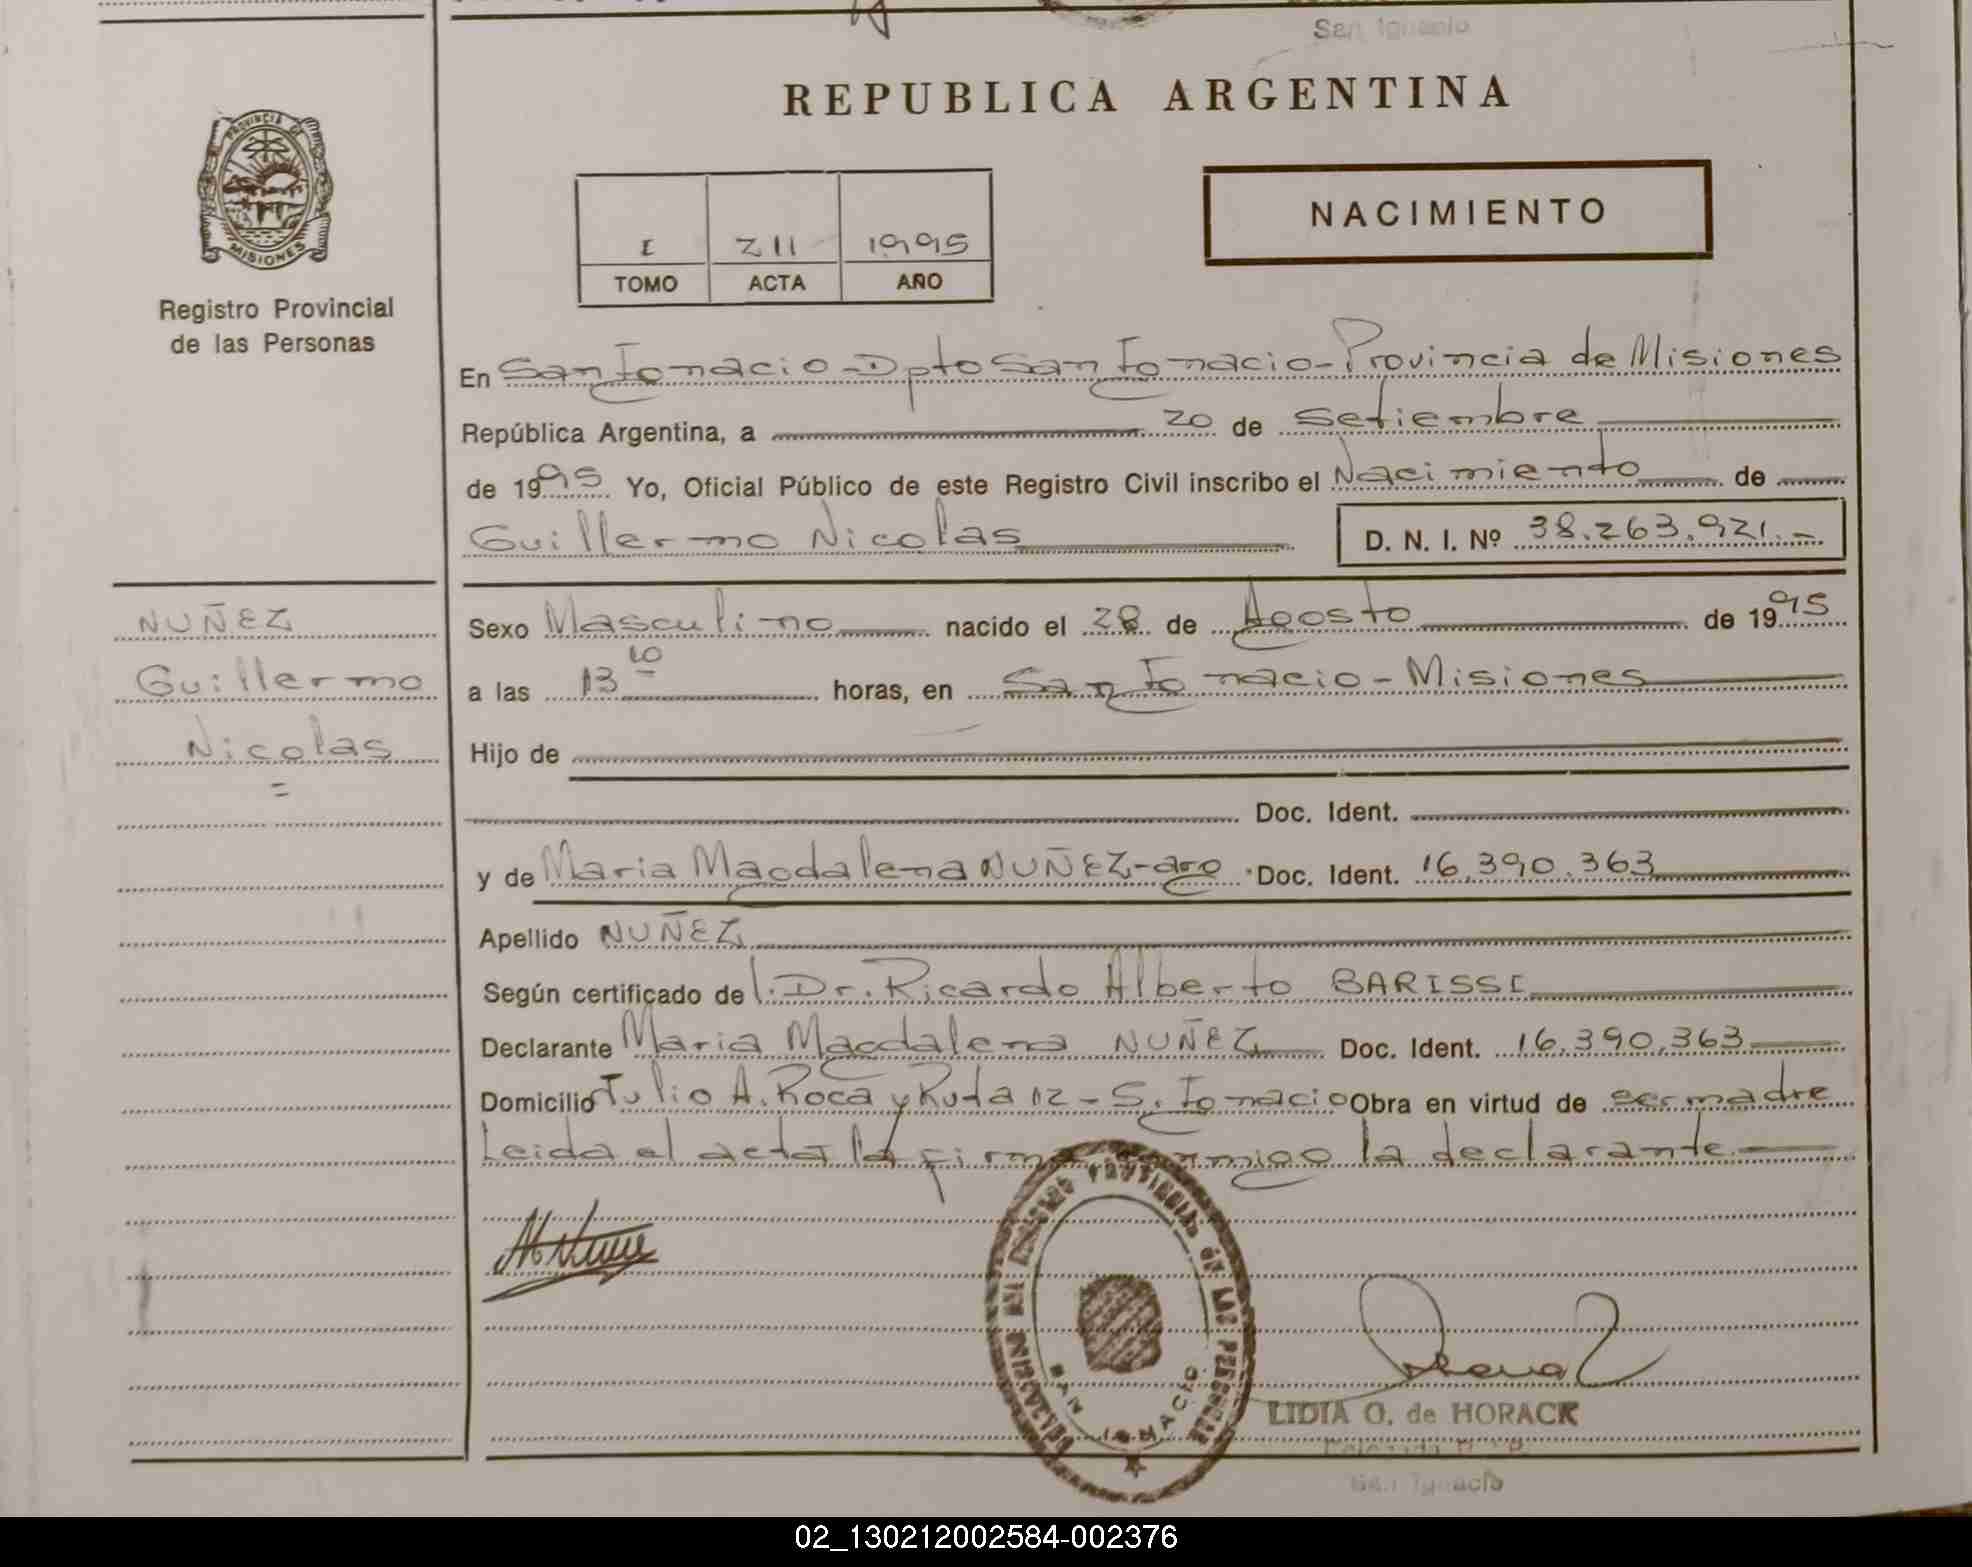 San Ignacio
REPUBLICA ARGENTINA
PROVINCIA DE
MISIONES
Registro Provincial
de las Personas
I 211 1995
TOMO ACTA AÑO
NACIMIENTO
En San Ignacio - Dpto San Ignacio - Provincia de Misiones
República Argentina, a 20 de Setiembre
de 1995 Yo, Oficial Público de este Registro Civil inscribo el Nacimiento de
Guillermo Nicolas D. N. I. Nº 38.263.921.-
NUÑEZ
Guillermo
Nicolas
=
Sexo Masculino nacido el 28 de Agosto de 1995
a las 13 10 horas, en San Ignacio - Misiones
Hijo de
Doc. Ident.
y de Maria Magdalena NUÑEZ - arg Doc. Ident. 16.390.363
Apellido NUÑEZ
Según certificado del. Dr. Ricardo Alberto BARISSI
Declarante Maria Magdalena NUÑEZ Doc. Ident. 16.390.363
Domicilio Julio A. Roca y Ruta 12 - S. Ignacio Obra en virtud de ser madre
Leida el acta la firma conmigo la declarante.
PROVINCIAL DE LAS PERSONAS
SAN IGNACIO
LIDIA O. de HORACK
San Ignacio
02_130212002584-002376